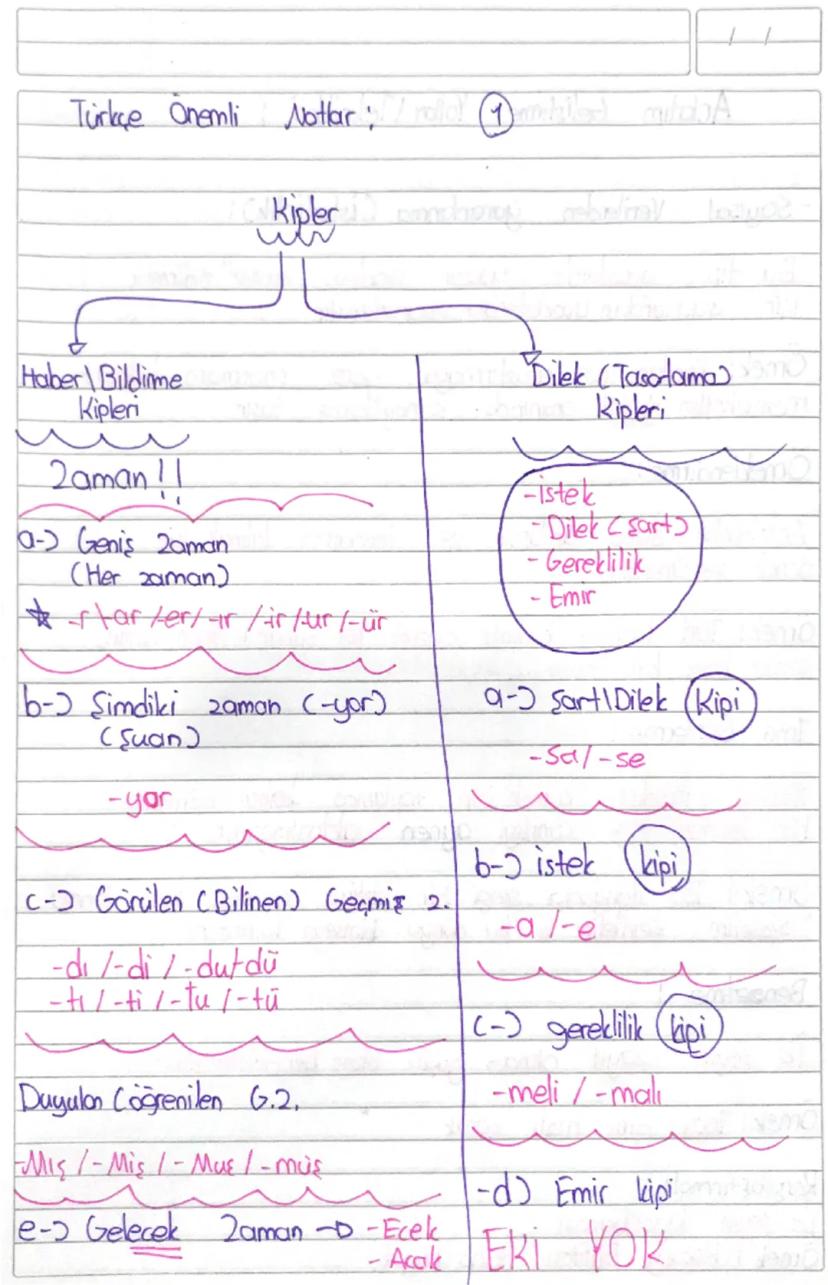 Türkçe Önemli Notlar: 1
Kipler
Haber\Bildirme
Kipleri
Zaman!!
a-) Geniş Zaman
(Her zaman)
-r\ar/er/-ır/ir/ur/-ür
b-) Şimdiki zaman (-yor)
(Şuan)
-yor
c-) Görülen (Bilinen) Geçmiş Z.
-dı/-di/-du/-dü
-tı/-ti/-tu/-tü
Duyulan (öğrenilen G.Z.
-Mış/-Miş/-Muş/-müş
e-) Gelecek Zaman → -Ecek
-Acak
Dilek (Tasarlama)
Kipleri
-istek
- Dilek (şart)
- Gereklilik
- Emir
a-) Şart\Dilek Kipi
-sa/-se
b-) istek kipi
-a/-e
c-) gereklilik kipi
-meli / -malı
-d) Emir kipi
EKİ YOK